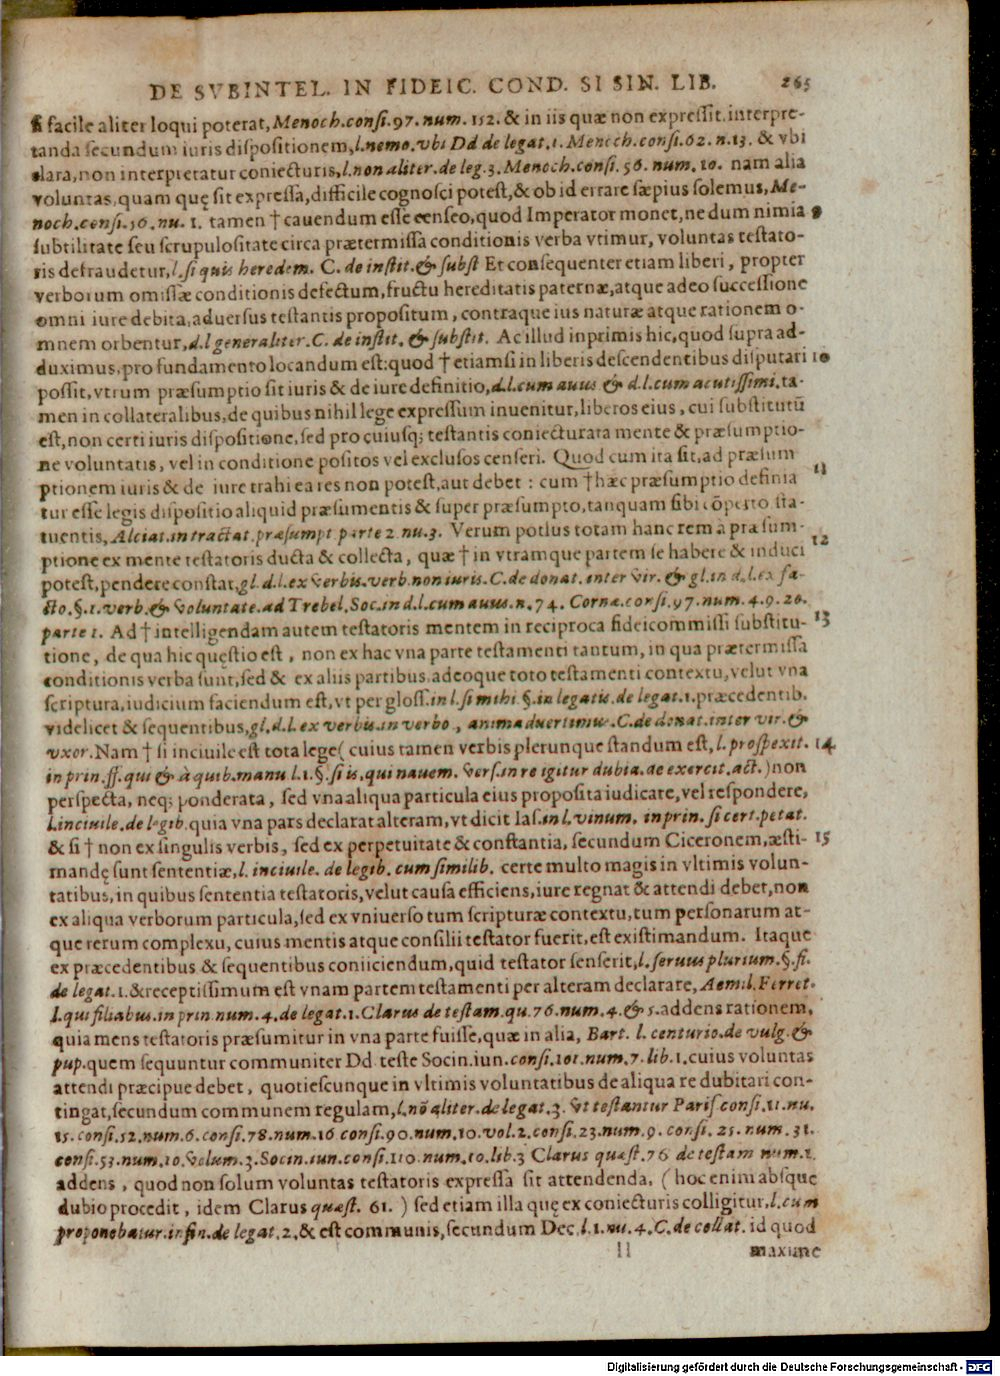 DE SVBINTEL. IN FIDEIC. COND. SI SIN. LIB. 265
facile aliter loqui poterat, Menoch.consi.97.num. 152. & in iis quæ non expressit, interpre-
tanda secundum iuris dispositionem, l.nemo.vbi Dd de legat.1. Menoch.consi.62. n.13. & vbi
clara, non interpretatur coniecturis, l.non aliter.de leg.3. Menoch.consi. 56. num. 10. nam alia
voluntas, quam quę sit expressa, difficile cognosci potest, & ob id errare sæpius solemus, Me-
noch.consi.56.nu. 1. tamen † cauendum esse censeo, quod Imperator monet, ne dum nimia 9
subtilitate seu scrupulositate circa prætermissa conditionis verba vtimur, voluntas testato-
ris defraudetur, l.si quis heredem. C. de instit. & subst Et consequenter etiam liberi, propter
verborum omissæ conditionis defectum, fructu hereditatis paternæ, atque adeo successione
omni iure debita, aduersus testantis propositum, contraque ius naturæ atque rationem o-
mnem orbentur, d.l generaliter. C. de instit. & substit. Ac illud inprimis hic, quod supra ad-
duximus, pro fundamento locandum est: quod † etiamsi in liberis descendentibus disputari 10
possit, vtrum præsumptio sit iuris & de iure definitio, d.l.cum auus & d.l.cum acutissimi, ta-
men in collateralibus, de quibus nihil lege expressum inuenitur, liberos eius, cui substitutū
est, non certi iuris dispositione, sed pro cuiusq; testantis coniecturata mente & præsumptio-
ne voluntatis, vel in conditione positos vel exclusos censeri. Quod cum ita sit, ad præsum
ptionem iuris & de iure trahi ea res non potest, aut debet: cum † hæc præsumptio definia 11
tur esse legis dispositio aliquid præsumentis & super præsumpto, tanquam sibi cōperto sta-
tuentis, Alciat.in tractat præsumpt parte 2 nu.3. Verum potius totam hanc rem à præsum-
ptione ex mente testatoris ducta & collecta, quæ † in vtramque partem se habere & induci 12
potest, pendere constat, gl.d.l.ex verbis.verb.non iuris.C.de donat.inter vir. & gl.in d.l.ex fa-
cto.§.1.verb. & voluntate.ad Trebel, Soc.in d.l.cum auus.n.74. Corne.consi.97.num.4.9.20.
parte 1. Ad † intelligendam autem testatoris mentem in reciproca fideicommissi substitu- 13
tione, de qua hic quęstio est, non ex hac vna parte testamenti tantum, in qua prætermissa
conditionis verba sunt, sed & ex aliis partibus, adeoque toto testamenti contextu, velut vna
scriptura, iudicium faciendum est, vt per gloss.in l.si mihi §.in legatis.de legat.1.præcedentib.
videlicet & sequentibus, gl.d.l.ex verbis.in verbo, animaduertimus.C.de donat.inter vir. &
vxor. Nam † si inciuile est tota lege (cuius tamen verbis plerunque standum est, l.prospexit. 14
in prin.ff.qui & à quib.manu l.1.§.si is, qui nauem. vers.in re igitur dubia.de exercit.act.) non
perspecta, neq; ponderata, sed vna aliqua particula eius proposita iudicare, vel respondere,
l.inciuile.de legib.quia vna pars declarat alteram, vt dicit Ias.in l.vinum. in prin. si cert.petat.
& si † non ex singulis verbis, sed ex perpetuitate & constantia, secundum Ciceronem, æsti- 15
mandę sunt sententiæ, l. inciuile. de legib. cum similib. certe multo magis in vltimis volun-
tatibus, in quibus sententia testatoris, velut causa efficiens, iure regnat & attendi debet, non
ex aliqua verborum particula, sed ex vniuerso tum scripturæ contextu, tum personarum at-
que rerum complexu, cuius mentis atque consilii testator fuerit, est existimandum. Itaque
ex præcedentibus & sequentibus coniiciendum, quid testator senserit, l.seruus plurium.§.fi.
de legat.1.& receptissimum est vnam partem testamenti per alteram declarare, Aemil.Ferret.
l.qui filiabus.in prin.num.4.de legat.1.Clarus de testam.qu.76.num.4. & 5.addens rationem,
quia mens testatoris præsumitur in vna parte fuisse, quæ in alia, Bart. l. centurio.de vulg. &
pup.quem sequuntur communiter Dd teste Socin.iun.consi.101.num.7.lib.1.cuius voluntas
attendi præcipue debet, quotiescunque in vltimis voluntatibus de aliqua re dubitari con-
tingat, secundum communem regulam, l.nō aliter.de legat.3. vt testantur Paris consi.11.nu.
15.consi.52.num.6.consi.78.num.16 consi.90.num.10.vol.2.consi.23.num.9.consi.25.num.31.
consi.53.num.10.volum.3.Socin.iun.consi.110.num.10.lib.3 Clarus quæst.76 de testam num.1.
addens, quod non solum voluntas testatoris expressa sit attendenda, (hoc enim absque
dubio procedit, idem Clarus quæst. 61.) sed etiam illa quę ex coniecturis colligitur, l.cum
proponebatur.in fin.de legat.2.& est communis, secundum Dec.l.1.nu.4.C.de collat. id quod
ll maxime
Digitalisierung gefördert durch die Deutsche Forschungsgemeinschaft - DFG